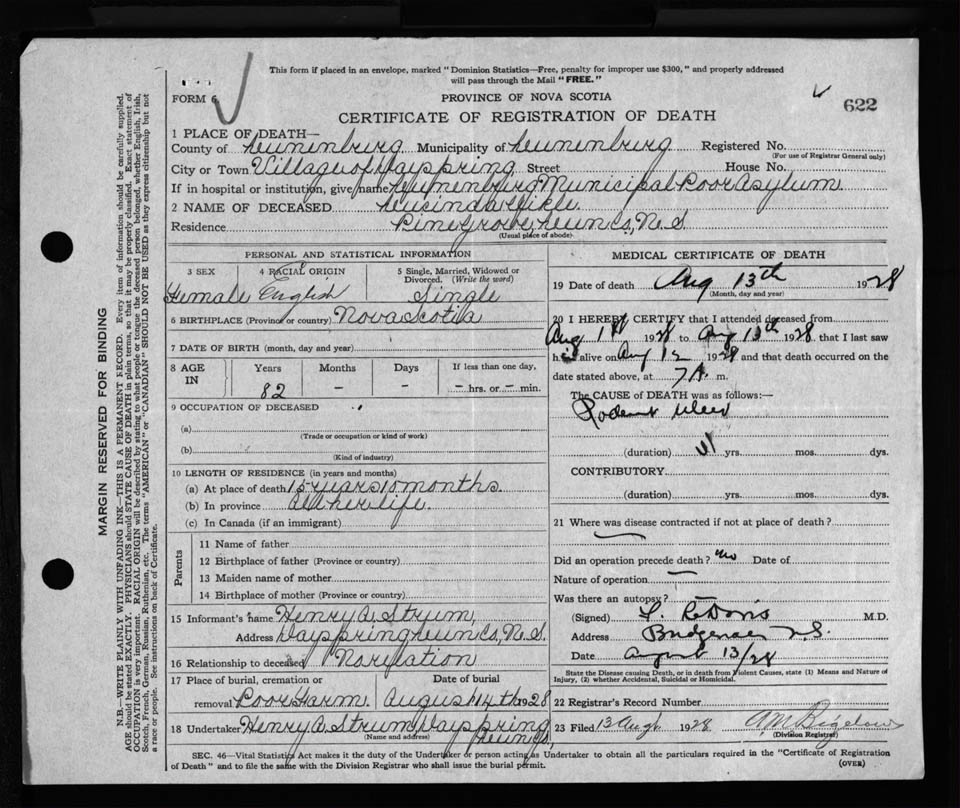 This form if placed in an envelope, marked "Dominion Statistics—Free, penalty for improper use $300," and properly addressed
will pass through the Mail "FREE."
FORM 6
PROVINCE OF NOVA SCOTIA
622
CERTIFICATE OF REGISTRATION OF DEATH
1 PLACE OF DEATH—
County of Lunenburg Municipality of Lunenburg Registered No.
(For use of Registrar General only)
City or Town Village of Dayspring Street House No.
If in hospital or institution, give name Lunenburg Municipal Poor Asylum
2 NAME OF DECEASED Lucinda
Residence Pine Grove, Lun Co, N.S
(Usual place of abode)
PERSONAL AND STATISTICAL INFORMATION
3 SEX 4 RACIAL ORIGIN 5 Single, Married, Widowed or Divorced. (Write the word)
Female English Single
6 BIRTHPLACE (Province or country) Nova Scotia
7 DATE OF BIRTH (month, day and year)
8 AGE IN Years Months Days If less than one day,
82 – – – hrs. or – min.
9 OCCUPATION OF DECEASED
(a)
(Trade or occupation or kind of work)
(b)
(Kind of industry)
10 LENGTH OF RESIDENCE (in years and months)
(a) At place of death 15 years 10 months.
(b) In province all her life.
(c) In Canada (if an immigrant)
Parents
11 Name of father
12 Birthplace of father (Province or country)
13 Maiden name of mother
14 Birthplace of mother (Province or country)
15 Informant's name Henry A. Strum,
Address Dayspring Lun Co, N.S.
16 Relationship to deceased No relation
17 Place of burial, cremation or
removal Poor Farm. August 14th 1928
18 Undertaker Henry A. Strum, Dayspring
(Name and address) Lun Co,
MEDICAL CERTIFICATE OF DEATH
19 Date of death Aug 13th 1928
(Month, day and year)
20 I HEREBY CERTIFY that I attended deceased from
Aug 1st 1928 to Aug 13th 1928, that I last saw
h alive on Aug 12 1928 and that death occurred on
date stated above, at 7 A. m.
The CAUSE of DEATH was as follows:—
Rodent Ulcer
(duration) yrs. mos. dys.
CONTRIBUTORY
(duration) yrs. mos. dys.
21 Where was disease contracted if not at place of death?
Did an operation precede death? No Date of
Nature of operation
Was there an autopsy?
(Signed) M.D.
Address N.S.
Date August 13/28
State the Disease causing Death, or in death from Violent Causes, state (1) Means and Nature of
Injury, (2) whether Accidental, Suicidal or Homicidal.
22 Registrar's Record Number
23 Filed 13 Aug 1928 A.M. Bigelow
(Division Registrar)
SEC. 46—Vital Statistics Act makes it the duty of the Undertaker or person acting as Undertaker to obtain all the particulars required in the "Certificate of Registration
of Death" and to file the same with the Division Registrar who shall issue the burial permit. (OVER)
MARGIN RESERVED FOR BINDING
N.B.—WRITE PLAINLY WITH UNFADING INK—THIS IS A PERMANENT RECORD. Every item of information should be carefully supplied.
AGE should be stated EXACTLY. PHYSICIANS should STATE CAUSE OF DEATH in plain terms, so that it may be properly classified. Exact statement of
OCCUPATION is very important. RACIAL ORIGIN will be described by stating to what people or tongue the deceased person belonged, whether English, Irish,
Scotch, French, German, Russian, Ruthenian, etc. The terms "AMERICAN" or "CANADIAN" SHOULD NOT BE USED as they express citizenship but not
a race or people. See instructions on back of Certificate.